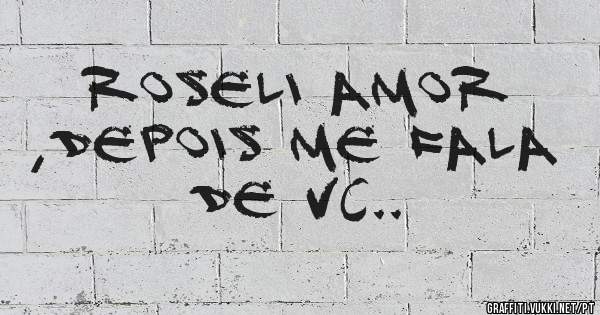 ROSELI AMOR
,DEPOIS ME FALA
DE VC..
GRAFFITI.VUKKI.NET/PT